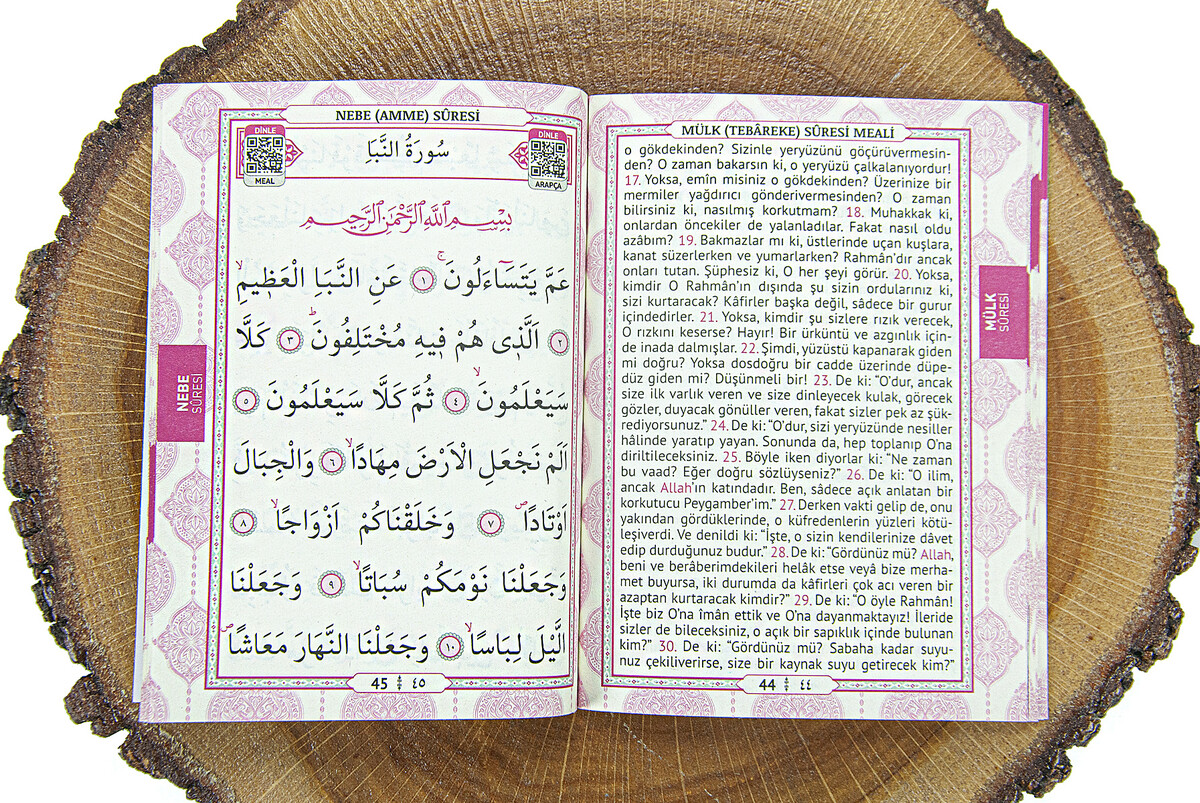 MÜLK (TEBÂREKE) SÛRESİ MEALİ
o gökdekinden? Sizinle yeryüzünü göçürüvermesin-
den? O zaman bakarsın ki, o yeryüzü çalkalanıyordur!
17. Yoksa, emîn misiniz o gökdekinden? Üzerinize bir
mermiler yağdırıcı gönderivermesinden? O zaman
bilirsiniz ki, nasılmış korkutmam? 18. Muhakkak ki,
onlardan öncekiler de yalanladılar. Fakat nasıl oldu
azâbım? 19. Bakmazlar mı ki, üstlerinde uçan kuşlara,
kanat süzerlerken ve yumarlarken? Rahmân’dır ancak
onları tutan. Şüphesiz ki, O her şeyi görür. 20. Yoksa,
kimdir O Rahmân’ın dışında şu sizin ordularınız ki,
sizi kurtaracak? Kâfirler başka değil, sâdece bir gurur
içindedirler. 21. Yoksa, kimdir şu sizlere rızık verecek,
O rızkını keserse? Hayır! Bir ürküntü ve azgınlık için-
de inada dalmışlar. 22. Şimdi, yüzüstü kapanarak giden
mi doğru? Yoksa dosdoğru bir cadde üzerinde düpe-
düz giden mi? Düşünmeli bir! 23. De ki: “O’dur, ancak
size ilk varlık veren ve size dinleyecek kulak, görecek
gözler, duyacak gönüller veren, fakat sizler pek az şük-
rediyorsunuz.” 24. De ki: “O’dur, sizi yeryüzünde nesiller
hâlinde yaratıp yayan. Sonunda da, hep toplanıp O’na
diriltileceksiniz. 25. Böyle iken diyorlar ki: “Ne zaman
bu vaad? Eğer doğru sözlüyseniz?” 26. De ki: “O ilim,
ancak Allah’ın katındadır. Ben, sâdece açık anlatan bir
korkutucu Peygamber’im.” 27. Derken vakti gelip de, onu
yakından gördüklerinde, o küfredenlerin yüzleri kötü-
leşiverdi. Ve denildi ki: “İşte, o sizin kendilerinize dâvet
edip durduğunuz budur.” 28. De ki: “Gördünüz mü? Allah,
beni ve berâberimdekileri helâk etse veyâ bize merha-
met buyursa, iki durumda da kâfirleri çok acı veren bir
azaptan kurtaracak kimdir?” 29. De ki: “O öyle Rahmân!
İşte biz O’na îmân ettik ve O’na dayanmaktayız! İleride
sizler de bileceksiniz, o açık bir sapıklık içinde bulunan
kim?” 30. De ki: “Gördünüz mü? Sabaha kadar suyu-
nuz çekiliverirse, size bir kaynak suyu getirecek kim?”
44 ٤٤
MÜLK
SÛRESİ
NEBE (AMME) SÛRESİ
DİNLE
MEAL
سُورَةُ النَّبَاِ
DİNLE
ARAPÇA
بِسْمِ اللّٰهِ الرَّحْمٰنِ الرَّحٖيمِ
عَمَّ يَتَسَٓاءَلُونَۚ ١ عَنِ النَّبَاِ الْعَظٖيمِۙ
٢ اَلَّذٖى هُمْ فٖيهِ مُخْتَلِفُونَۜ ٣ كَلَّا
سَيَعْلَمُونَۙ ٤ ثُمَّ كَلَّا سَيَعْلَمُونَ ٥
اَلَمْ نَجْعَلِ الْاَرْضَ مِهَادًاۙ ٦ وَالْجِبَالَ
اَوْتَادًاۖ ٧ وَخَلَقْنَاكُمْ اَزْوَاجًاۙ ٨
وَجَعَلْنَا نَوْمَكُمْ سُبَاتًاۙ ٩ وَجَعَلْنَا
الَّيْلَ لِبَاسًاۙ ١٠ وَجَعَلْنَا النَّهَارَ مَعَاشًاۖ
45 ٤٥
NEBE
SÛRESİ